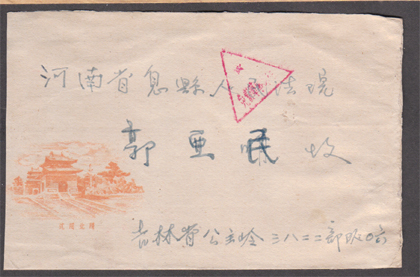 河南省息县人民法院
郭亚民 收
吉林省公主岭三八二二部队